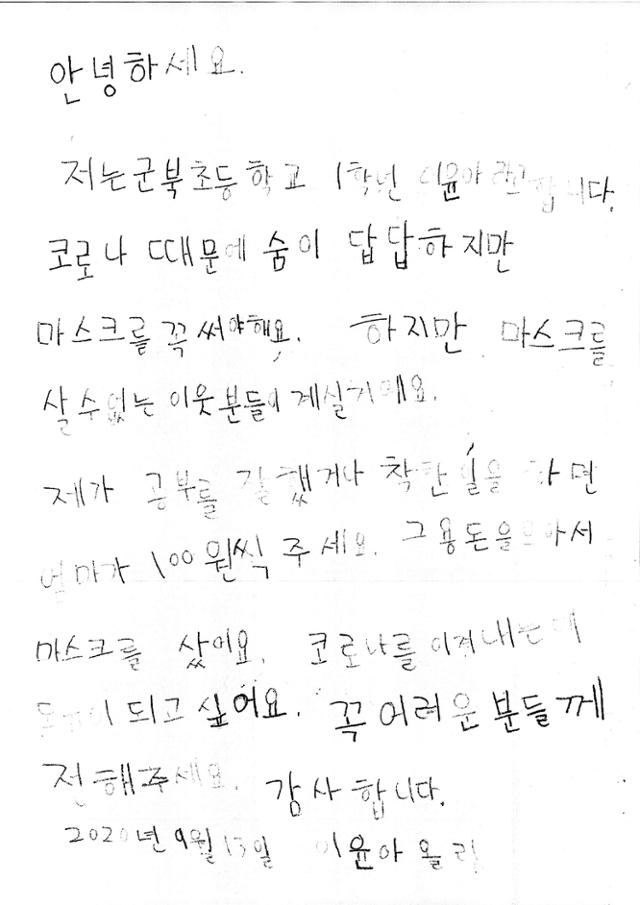 안녕하세요.
저는군북초등학교 1학년 이윤아라고합니다.
코로나 때문에 숨이 답답하지만
마스크를 꼭 써야해요. 하지만 마스크를
살수없는 이웃분들이 계실거에요.
제가 공부를 잘했거나 착한일을 하면
엄마가 100원씩 주세요. 그용돈을모아서
마스크를 샀어요. 코로나를이겨내는데
도움이 되고 싶어요. 꼭 어려운 분들께
전해주세요. 감사합니다.
2020년 9월 13일 이윤아 올림